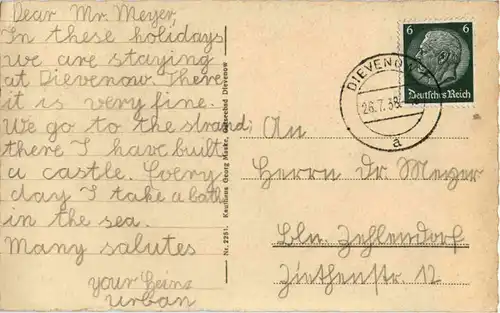 Dear Mr. Meyer,
In these holidays
we are staying
at Dievenow. There
it is very fine.
We go to the strand;
there I have built
a castle. Every
day I take a bath
in the sea.
Many salutes
your Heinz
Urban
Nr. 2251. Kaufhaus Georg Manke, Ostseebad Dievenow
6 6
Deutsches Reich
DIEVENOW
26.7.38
a
An
Herrn Dr Meyer
Bln. Zehlendorf
Ziethenstr. 12